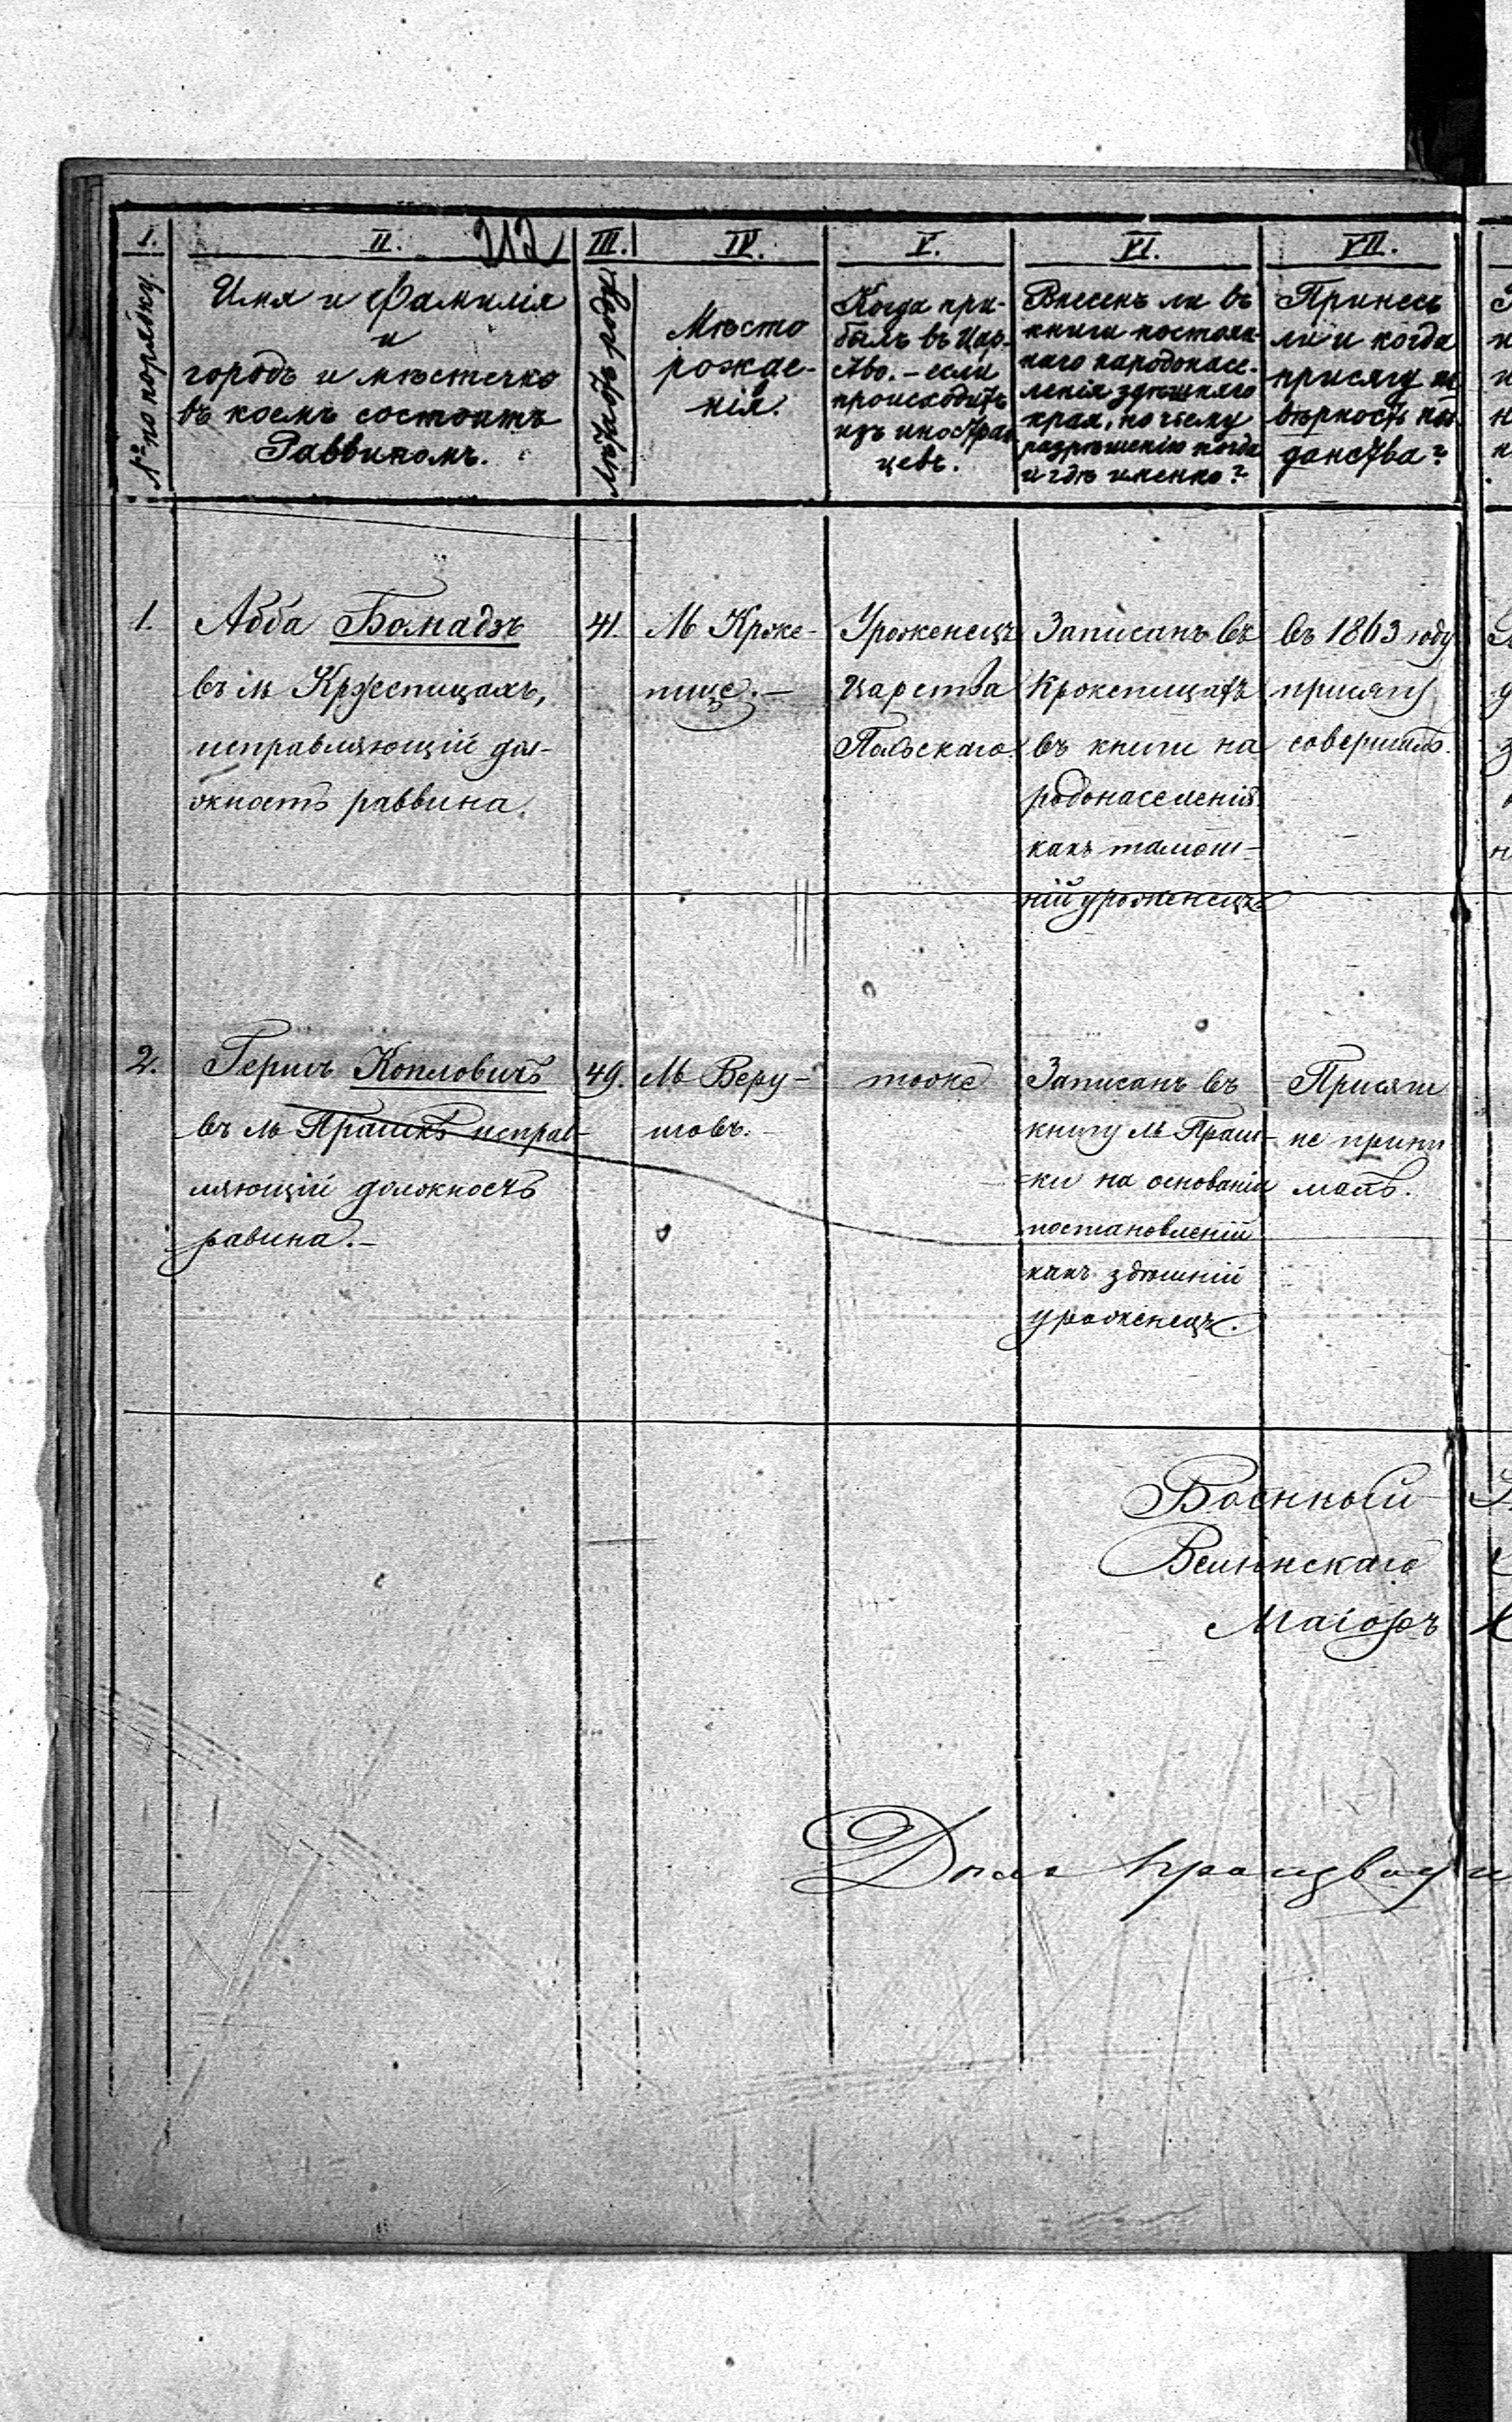 212
I.
II.
III.
IV.
V.
VI.
VII.
№ по порядку.
Имя и Фамилія
и
городъ и мѣстечко
въ коемъ состоитъ
Раввиномъ.
Мѣсто
рожде-
нія.
Когда при-
былъ въ Цар-
ство. – если
происходитъ
изъ иностран
цевъ.
Внесенъ ли въ
книги постоян-
наго народонасе-
ленія здѣшняго
края, по чьему
разрѣшенію когда
и гдѣ именно?
Принесъ
ли и когда
присягу на
вѣрность под
данства?
1.
Абба Бомадзъ
въ м Кржепицахъ,
исправляющій дол-
жность раввина.
41.
М Крже-
пице. –
Уроженецъ
Царства
Польскаго.
Записанъ въ
Кржепицахъ
въ книги на
родонаселенія
какъ тамош-
ній уроженецъ
въ 1863 году
присягу
совершилъ.
2.
Гершъ Копловичъ
въ м Прашкѣ исправ-
ляющій должность
равина. –
49.
М Веру-
шовъ. –
тоже
Записанъ въ
книгу м Праш-
ки на основаніи
постановленій
какъ здѣшній
уроженецъ.
Присяги
не прини
малъ.
Военный
Велюнскаго
Маіоръ